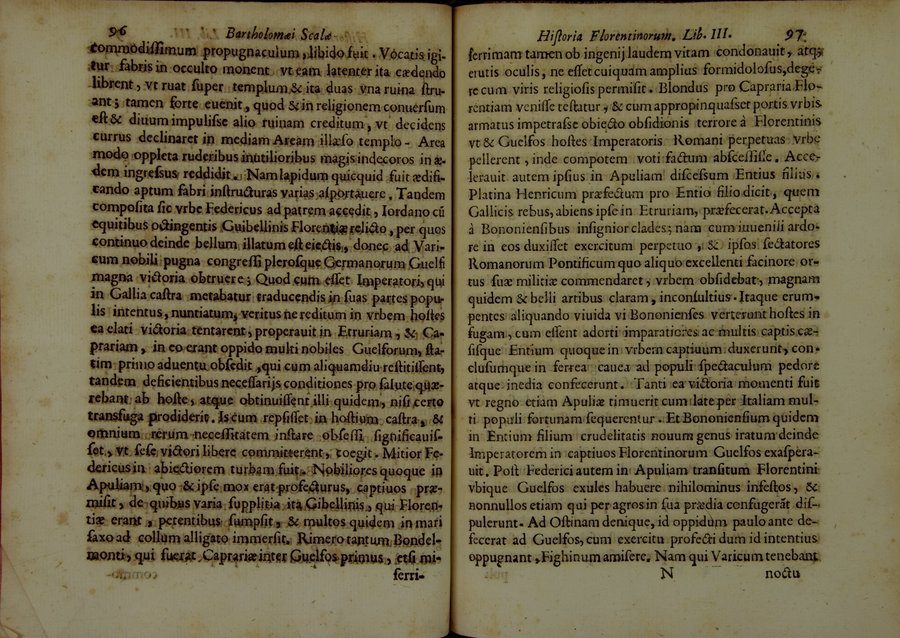 96 Bartholomæi Scalæ
commodiſſimum propugnaculum, libido fuit. Vocatis igi-
tur fabris in occulto monent vt eam latenter ita cædendo
librent, vt ruat ſuper templum & ita duas vna ruina ſtru-
ant; tamen forte euenit, quod & in religionem conuerſum
eſt & diuum impulſiſſe alio ruinam creditum, vt decidens
currus declinaret in mediam Aream illæſo templo. Area
modo oppleta ruderibus inutilioribus magis indecoros in æ-
dem ingreſſus reddidit. Nam lapidum quicquid fuit ædifi-
cando aptum fabri inſtructuras varias aſportauere. Tandem
compoſita ſic vrbe Federicus ad patrem accedit, Iordano cũ
equitibus octingentis Guibellinis Florentiæ relicto, per quos
continuo deinde bellum illatum eſt eiectis, donec ad Vari-
cum nobili pugna congreſſi pleroſque Germanorum Guelfi
magna victoria obtruere; Quod cum eſſet Imperatori, qui
in Gallia caſtra metabatur traducendis in ſuas partes popu-
lis intentus, nuntiatum, veritus ne reditum in vrbem hoſtes
ea elati victoria tentarent, properauit in Etruriam, & Ca-
prariam, in eo erant oppido multi nobiles Guelforum, ſta-
tim primo aduentu obſedit, qui cum aliquamdiu reſtitiſſent,
tandem deficientibus neceſſarijs conditiones pro ſalute quæ-
rebant ab hoſte, atque obtinuiſſent illi quidem, niſi certo
transfuga prodidiſſet. Is cum repſiſſet in hoſtium caſtra, &
omnium rerum neceſſitatem inſtare obſeſſi ſignificauiſ-
ſet, vt ſeſe victori libere committerent, coegit. Mitior Fe-
dericus in abiectiorem turbam fuit. Nobiliores quoque in
Apuliam, quo & ipſe mox erat profecturus, captiuos præ-
miſit, de quibus varia ſupplitia ita Gibellinis, qui Floren-
tiæ erant, petentibus ſumpſit, & multos quidem in mari
ſaxo ad collum alligato immerſit. Rimero tantum Bondel-
monti, qui fuerat Caprariæ inter Guelfos primus, etſi mi-
ſerri-
Hiſtoria Florentinorum. Lib. III. 97
ſerrimam tamen ob ingenij laudem vitam condonauit, atqȝ
erutis oculis, ne eſſet cuiquam amplius formidoloſus, dege-
re cum viris religioſis permiſit. Blondus pro Capraria Flo-
rentiam veniſſe teſtatur, & cum appropinquaſſet portis vrbis
armatus impetraſſe obiecto obſidionis terrore à Florentinis
vt & Guelfos hoſtes Imperatoris Romani perpetuas vrbe
pellerent, inde compotem voti factum abſceſſiſſe. Acce-
lerauit autem ipſius in Apuliam diſceſſum Entius filius.
Platina Henricum præfectum pro Entio filio dicit, quem
Gallicis rebus, abiens ipſe in Etruriam, præfecerat. Accepta
à Bononienſibus inſignior clades; nam cum iuuenili ardo-
re in eos duxiſſet exercitum perpetuo, & ipſos ſectatores
Romanorum Pontificum quo aliquo excellenti facinore or-
tus ſuæ militiæ commendaret, vrbem obſidebat, magnam
quidem & belli artibus claram, inconſultius. Itaque erum-
pentes aliquando viuida vi Bononienſes verterunt hoſtes in
fugam, cum eſſent adorti imparatiores ac multis captis cæ-
ſiſque Entium quoque in vrbem captiuum duxerunt, con-
cluſumque in ferrea cauea ad populi ſpectaculum pedore
atque inedia confecerunt. Tanti ea victoria momenti fuit
vt regno etiam Apuliæ timuerit cum late per Italiam mul-
ti populi fortunam ſequerentur. Et Bononienſium quidem
in Entium filium crudelitatis nouum genus iratum deinde
Imperatorem in captiuos Florentinorum Guelfos exaſpera-
uit. Poſt Federici autem in Apuliam tranſitum Florentini
vbique Guelfos exules habuere nihilominus infeſtos, &
nonnullos etiam qui per agros in ſua prædia confugerãt diſ-
pulerunt. Ad Oſtinam denique, id oppidum paulo ante de-
fecerat ad Guelfos, cum exercitu profecti dum id intentius
oppugnant, Fighinum amiſere. Nam qui Varicum tenebant
N noctu